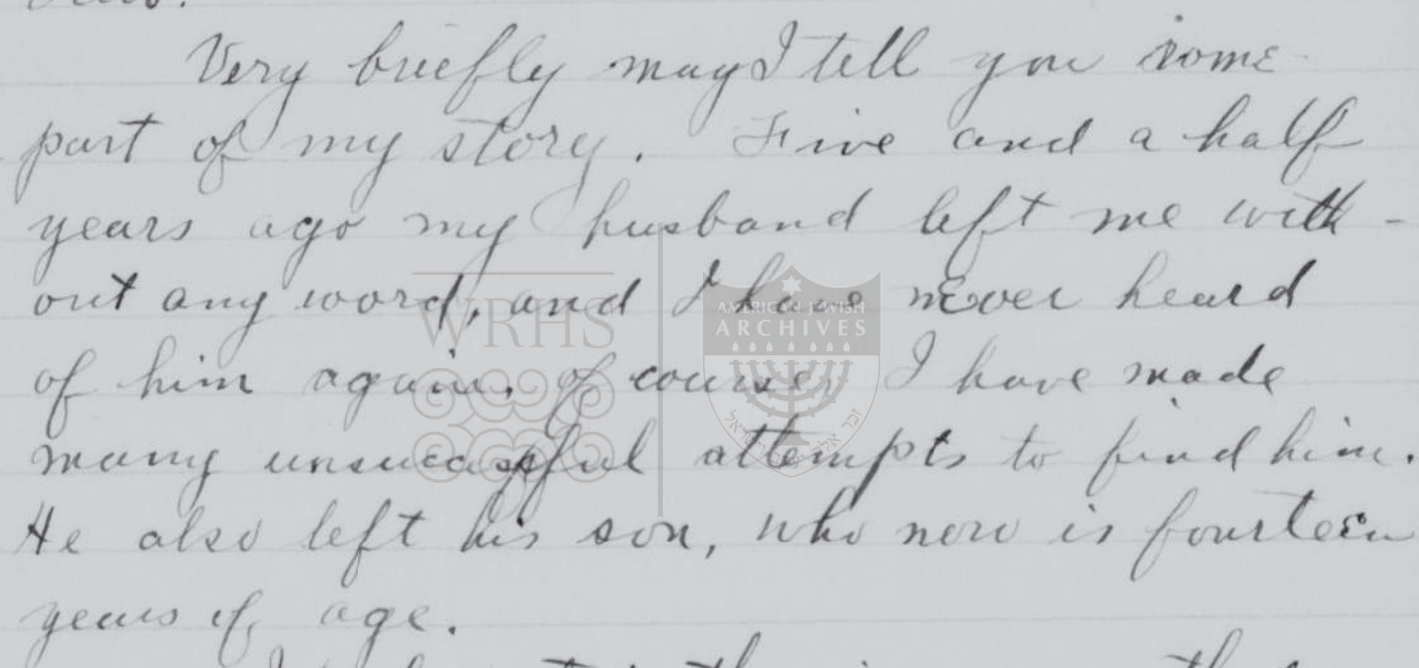 Very briefly may I tell you some
part of my story. Five and a half
years ago my husband left me with-
out any word, and I have never heard
of him again. Of course, I have made
many unsuccessful attempts to find him.
He also left his son, who now is fourteen
years of age.
WRHS
AMERICAN JEWISH
ARCHIVES